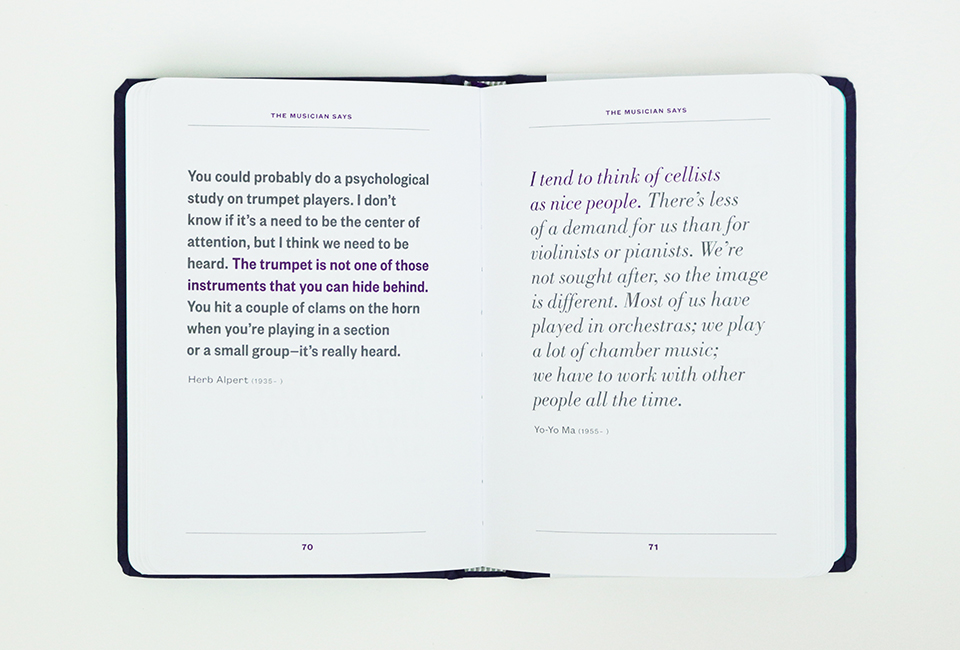 THE MUSICIAN SAYS
You could probably do a psychological
study on trumpet players. I don't
know if it's a need to be the center of
attention, but I think we need to be
heard. The trumpet is not one of those
instruments that you can hide behind.
You hit a couple of clams on the horn
when you're playing in a section
or a small group—it's really heard.
Herb Alpert (1935– )
70
THE MUSICIAN SAYS
I tend to think of cellists
as nice people. There's less
of a demand for us than for
violinists or pianists. We're
not sought after, so the image
is different. Most of us have
played in orchestras; we play
a lot of chamber music;
we have to work with other
people all the time.
Yo-Yo Ma (1955– )
71